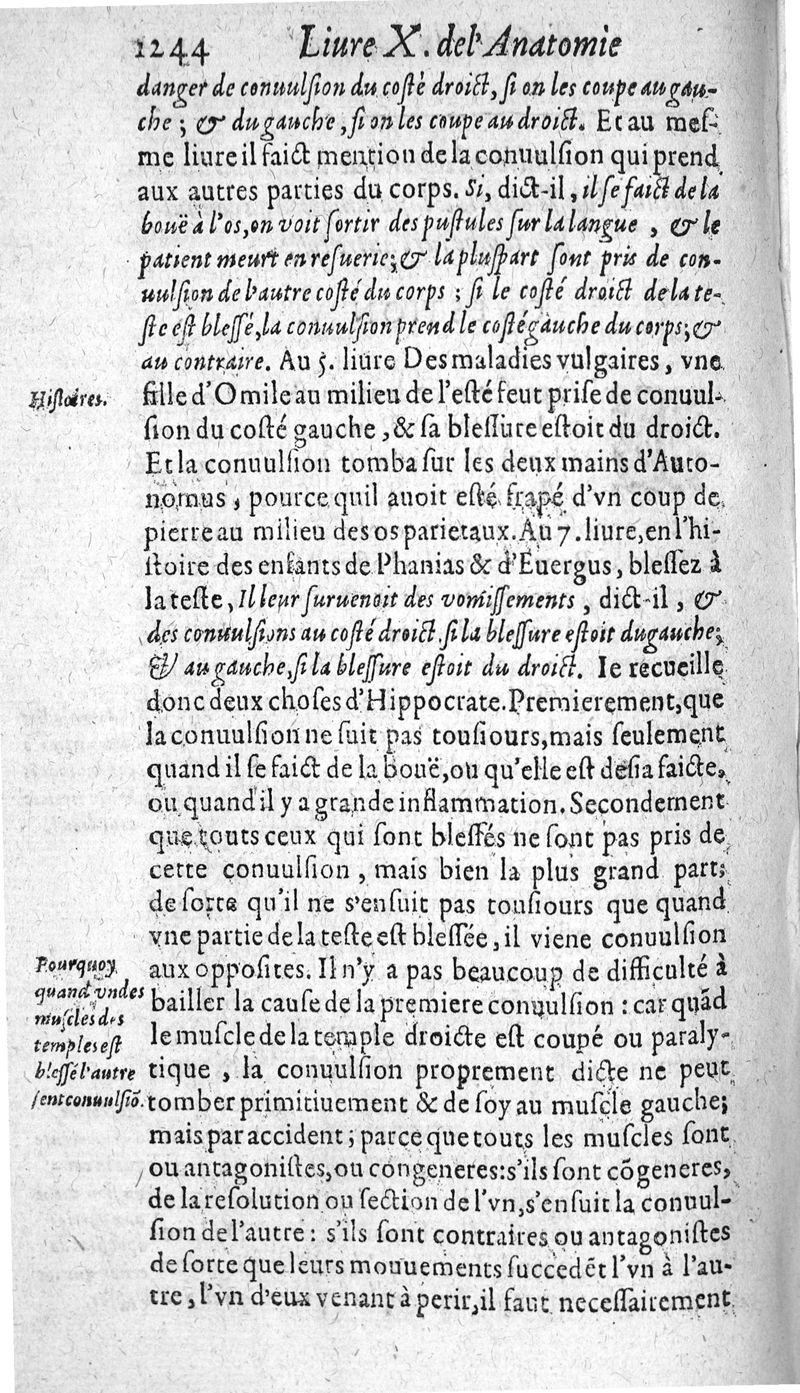 1244 Liure X. de l'Anatomie
danger de conuulſion du coſté droict, ſi on les coupe au gau-
che ; & du gauche, ſi on les coupe au droict. Et au meſ-
me liure il faict mention de la conuulſion qui prend
aux autres parties du corps. Si, dict-il, il ſe faict de la
bouë à l'os, on voit ſortir des puſtules ſur la langue , & le
patient meurt en reſuerie; & la pluſpart ſont pris de con-
uulſion de l'autre coſté du corps ; ſi le coſté droict de la te-
ſte eſt bleſſé, la conuulſion prend le coſté gauche du corps; &
au contraire. Au 5. liure Des maladies vulgaires, vne
Hiſtoires.
fille d'Omile au milieu de l'eſté feut priſe de conuul-
ſion du coſté gauche, & ſa bleſſure eſtoit du droict.
Et la conuulſion tomba ſur les deux mains d'Auto-
nomus , pource quil auoit eſté frapé d'vn coup de
pierre au milieu des os parietaux. Au 7. liure, en l'hi-
ſtoire des enfants de Phanias & d'Euergus, bleſſez à
la teſte, Il leur ſuruenoit des vomiſſements , dict-il , &
des conuulſions au coſté droict, ſi la bleſſure eſtoit du gauche;
& au gauche, ſi la bleſſure eſtoit du droict. Ie recueille
donc deux choſes d'Hippocrate. Premierement, que
la conuulſion ne ſuit pas touſiours, mais ſeulement
quand il ſe faict de la bouë, ou qu'elle eſt deſia faicte,
ou quand il y a grande inflammation. Secondement
que touts ceux qui ſont bleſſés ne ſont pas pris de
cette conuulſion , mais bien la plus grand part;
de ſorte qu'il ne s'enſuit pas touſiours que quand
vne partie de la teſte eſt bleſſée, il viene conuulſion
Pourquoy
quand vn des
muſcles des
temples eſt
bleſſé l'autre
ſent conuulſiõ.
aux oppoſites. Il n'y a pas beaucoup de difficulté à
bailler la cauſe de la premiere conuulſion : car quãd
le muſcle de la temple droicte eſt coupé ou paraly-
tique , la conuulſion proprement dicte ne peut
tomber primitiuement & de ſoy au muſcle gauche;
mais par accident ; parce que touts les muſcles ſont
ou antagoniſtes, ou congeneres: s'ils ſont cõgeneres,
de la reſolution ou ſection de l'vn, s'enſuit la conuul-
ſion de l'autre : s'ils ſont contraires ou antagoniſtes
de ſorte que leurs mouuements ſuccedẽt l'vn à l'au-
tre, l'vn d'eux venant à perir, il faut neceſſairement